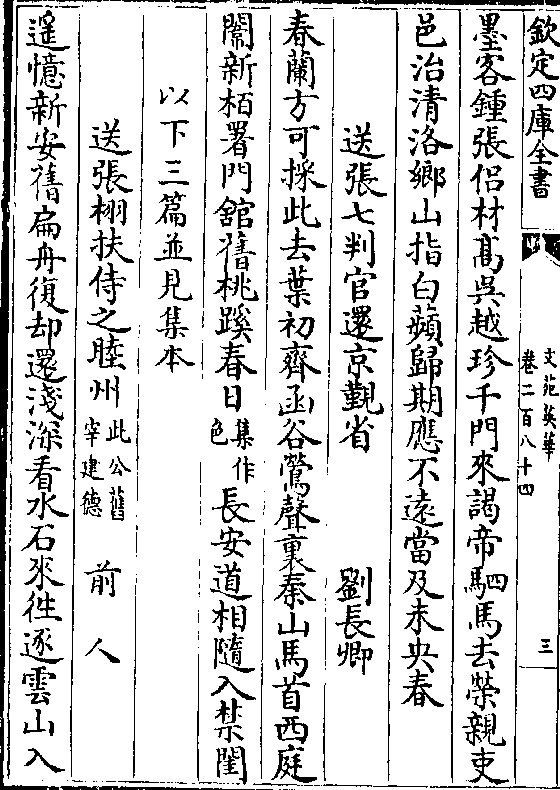 欽定四庫全書
文苑英華
卷二百八十四
三
墨客鍾張侶材髙吳越珍千門來謁帝駟馬去榮親吏
邑沿清洛鄉山指白蘋歸期應不遠當及未央春
送張七判官還京覲省 劉長卿
春蘭方可採此去葉初齊函谷鶯聲裏秦山馬首西庭
闈新栢署門館舊桃蹊春日集作色長安道相隨入禁閨
以下三篇並見集本
送張栩扶侍之睦州此公舊宰建德 前人
遥憶新安舊扁舟復却還淺深看水石來徃逐雲山入